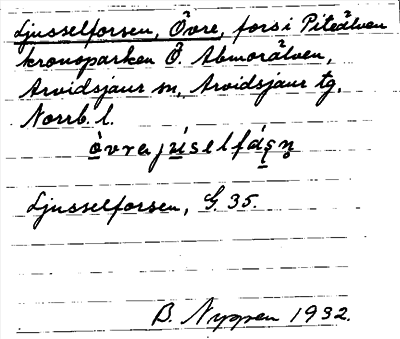 Ljusselforsen, Övre, fors i Piteälven
kronoparken Ö. Abmorälven,
Arvidsjaur sn, Arvidsjaur tg,
Norrb. l.
òvrajúselfáʂn̥
Ljusselforsen, G. 35.
B. Nyppen 1932.